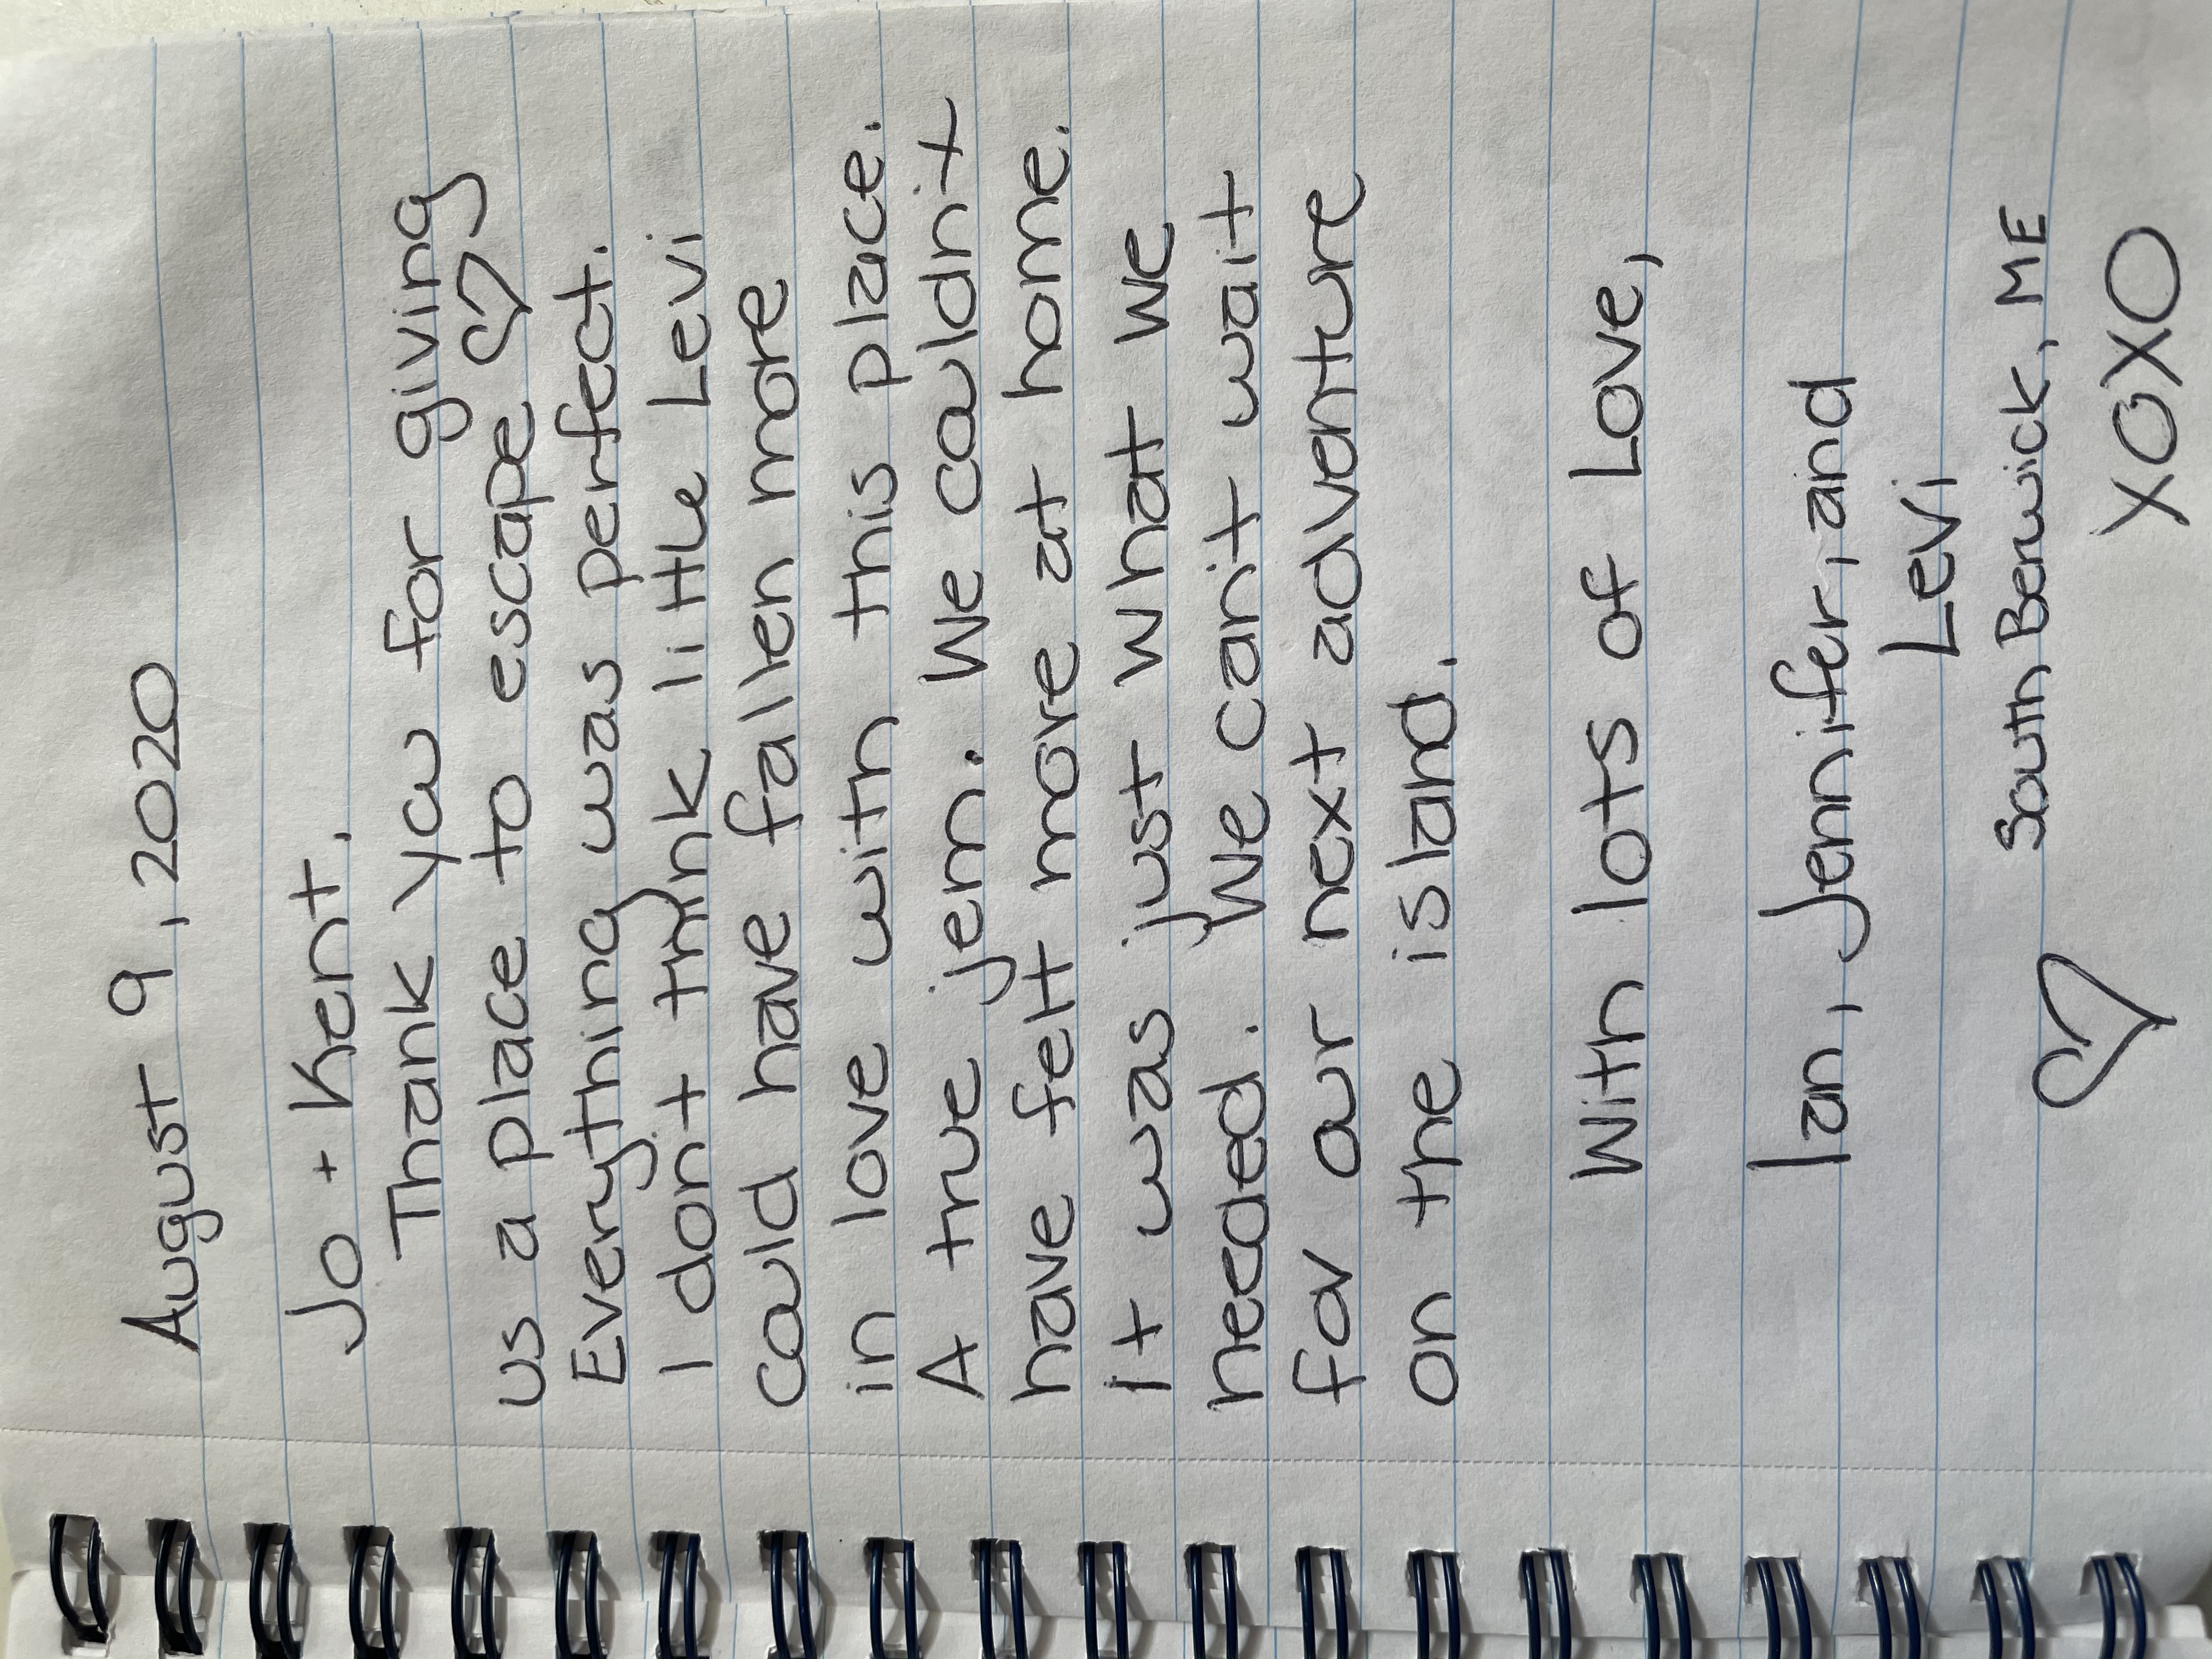 August 9, 2020
Jo + Kent,
Thank you for giving
us a place to escape ♡
Everything was perfect.
I don't think little Levi
could have fallen more
in love with this place.
A true jem. We couldn't
have felt more at home.
It was just what we
needed. We can't wait
for our next adventure
on the island.
With lots of Love,
Ian, Jennifer, and
Levi
South Berwick, ME
♡ XOXO